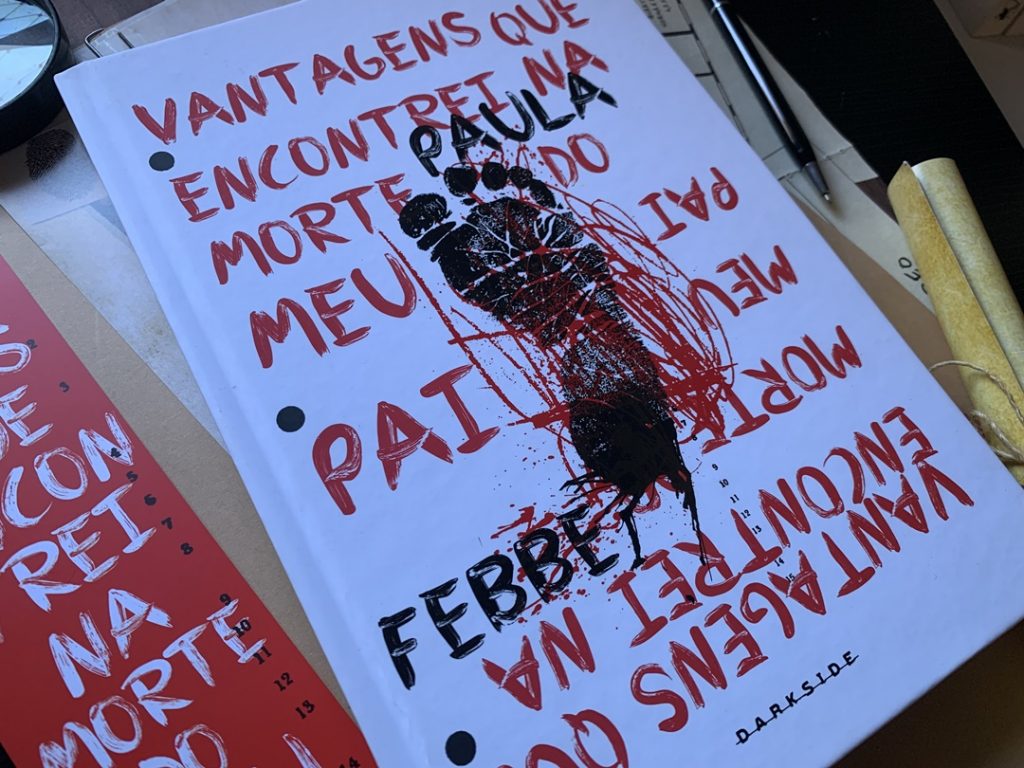 VANTAGENS QUE
ENCONTREI NA
PAULA
MORTE DO
MEU
PAI
FEBBE
VANTAGENS QU
ENCONTREI NA
MORTE
MEU
PAI
9
10
11
12
13
14
15
DARKSIDE
3
DE
CON
4
5
REI
6
7
8
NA
9
MORTE
10
11
12
DO
13
14